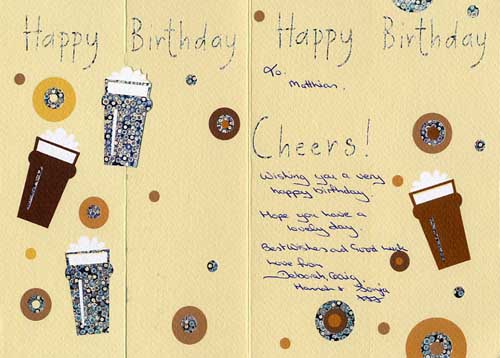 Happy Birthday
Happy Birthday
To.
Matthias,
Cheers!
Wishing you a very
happy birthday.
Hope you have a
lovely day.
Best Wishes and Good luck
love from
Deborah, Craig,
Hannah & Sonja
xxx